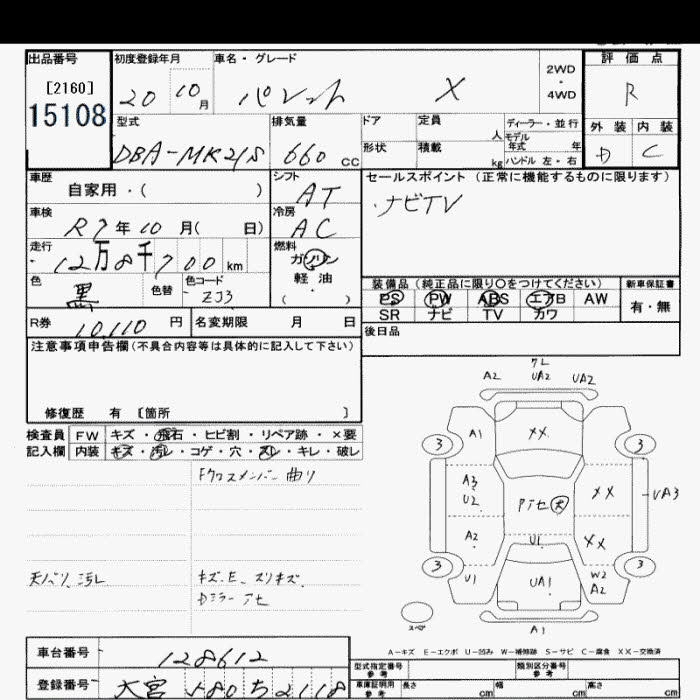 出品番号 初度登録年月 車名・グレード 評価点
[2160] 20 10月 パレット X 2WD・4WD R
15108 型式 排気量 ドア 定員 人 ディーラー・並行 モデル 年式 年 外装 内装
DBA-MK21S 660cc 形状 積載 kg ハンドル 左・右 D C
車歴 自家用・( ) シフト AT セールスポイント (正常に機能するものに限ります)
車検 R7年10月( 日) 冷房 AC ・ナビTV
走行 12万8千700km 燃料 ガソリン・軽油 ( )
色 黒 色替 色コード ZJ3 装備品(純正品に限り〇をつけてください) 新車保証書
PS PW ABS エアB AW 有・無
SR ナビ TV カワ
R券 10,110円 名変期限 月 日 後日品
注意事項申告欄(不具合内容等は具体的に記入して下さい)
修復歴 有 〔箇所 〕
検査員 FW キズ・飛石・ヒビ割・リペア跡・×要
記入欄 内装 キズ・汚レ・コゲ・穴・スレ・キレ・破レ
Fクロスメンバー曲り
天バリ汚レ キズ.E.スリキズ.
Dミラーアセ
ワレ
A2 UA2 UA2
3 A1 XX 3
A3 U2 アTセ XX UA3
A2 U1 XX
3 U1 UA1 W2 A2 3
スペア A1
A-キズ E-エクボ U-凹み W-補修跡 S-サビ C-腐食 XX-交換済
車台番号 128612 型式指定番号 参考 類別区分番号 参考
登録番号 大宮 580 ち 2118 車庫証明用 参考 長さ cm 幅 cm 高さ cm